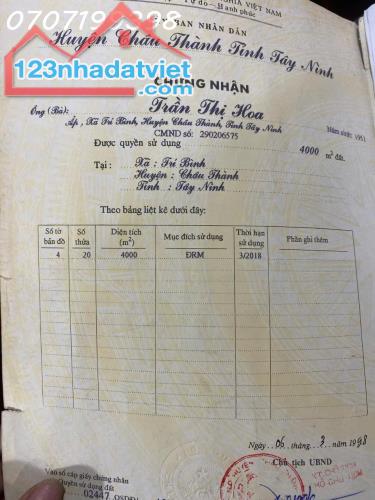 NGHĨA VIỆT NAM
Tự do - Hạnh phúc
BAN NHÂN DÂN
Huyện Châu Thành Tỉnh Tây Ninh
123nhadatviet
CHỨNG NHẬN
Ông (Bà): Trần Thị Hoa Năm sinh: 1951
Ấp, Xã Trí Bình, Huyện Châu Thành, Tỉnh Tây Ninh
CMND số: 290206575
Được quyền sử dụng 4000 m² đất.
Tại : Xã : Trí Bình
Huyện : Châu Thành
Tỉnh : Tây Ninh
Theo bảng liệt kê dưới đây:
Số tờ bản đồ Số thửa Diện tích (m²) Mục đích sử dụng Thời hạn sử dụng Phần ghi thêm
4 20 4000 ĐRM 3/2018
Ngày 06 tháng 3 năm 1998
Chủ tịch UBND
Vào sổ cấp giấy chứng nhận
Quyền sử dụng đất
02447 QSDĐ/